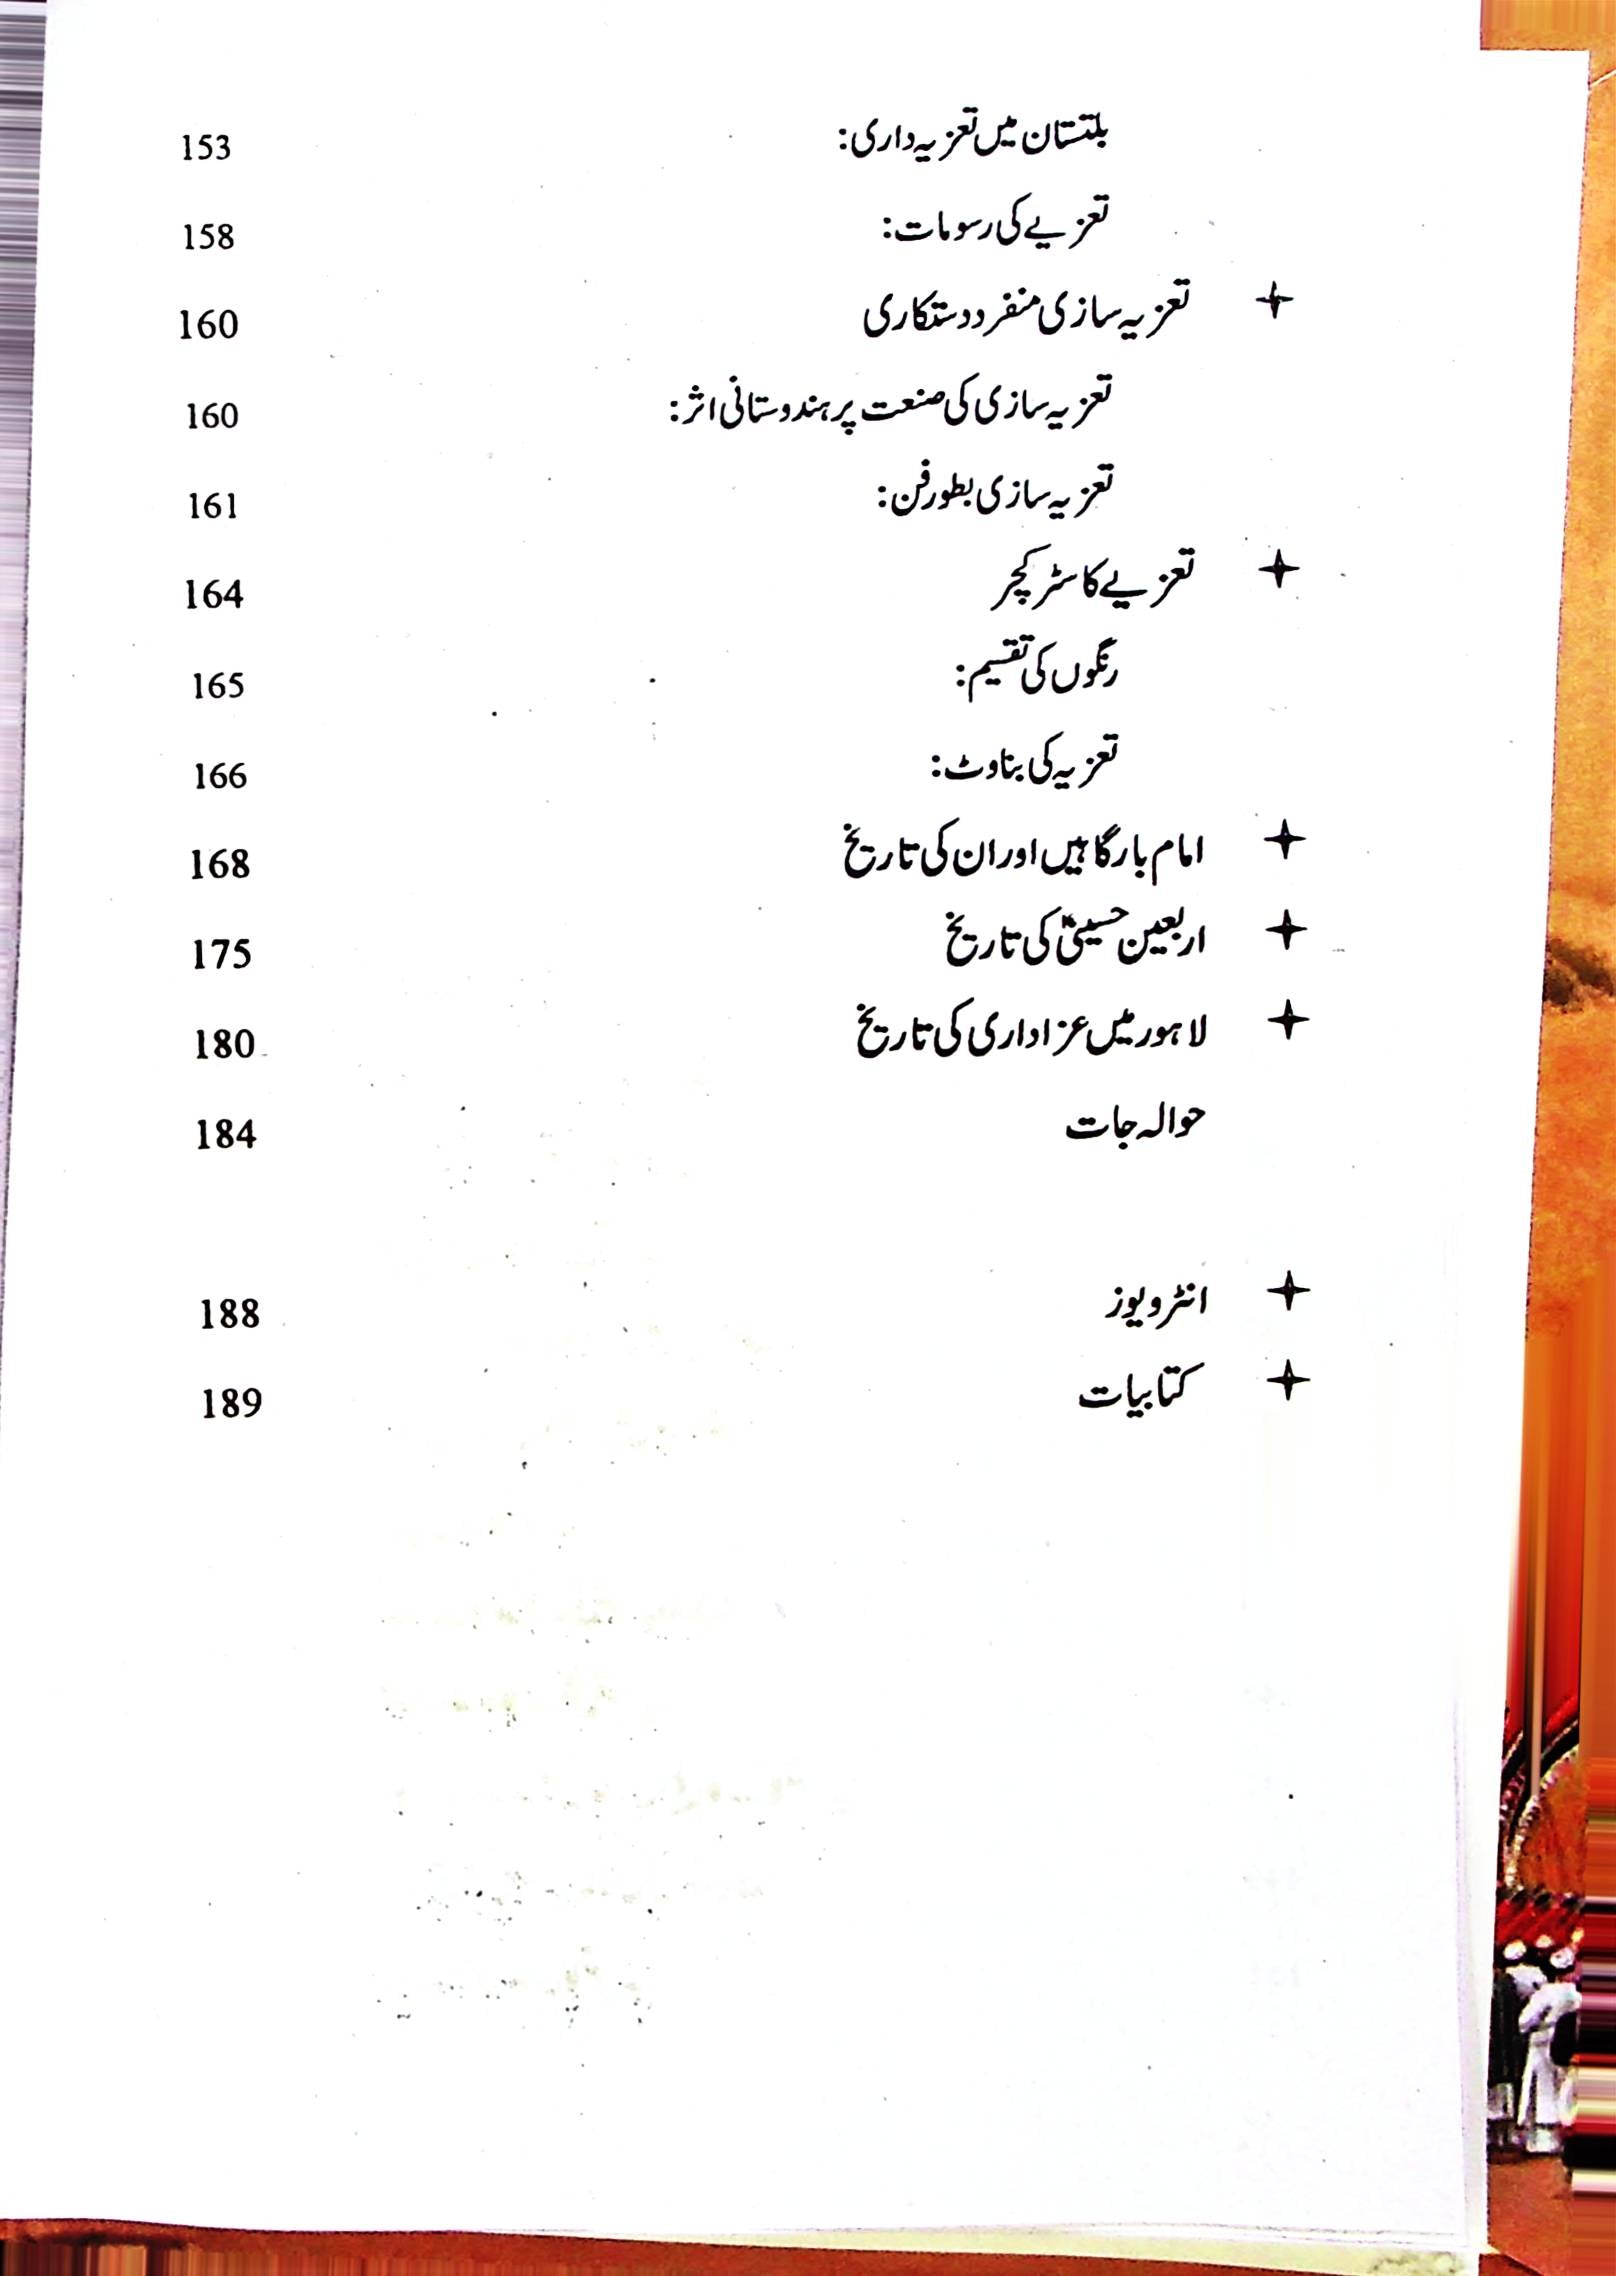 بلتستان میں تعزیہ داری: 153
تعزیے کی رسومات: 158
✦ تعزیہ سازی منفرد دستکاری 160
تعزیہ سازی کی صنعت پر ہندوستانی اثر: 160
تعزیہ سازی بطور فن: 161
✦ تعزیے کا سٹرکچر 164
رنگوں کی تقسیم: 165
تعزیہ کی بناوٹ: 166
✦ امام بارگاہیں اور ان کی تاریخ 168
✦ اربعین حسینیؑ کی تاریخ 175
✦ لاہور میں عزاداری کی تاریخ 180
حوالہ جات 184
✦ انٹرویوز 188
✦ کتابیات 189